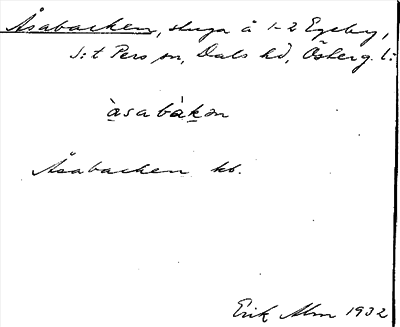 Åsabacken, stuga å 1-2 Egeby,
S:t Pers sn, Dals hd, Österg. l:
àsabàkən
Åsabacken kb.
Erik Alm 1932